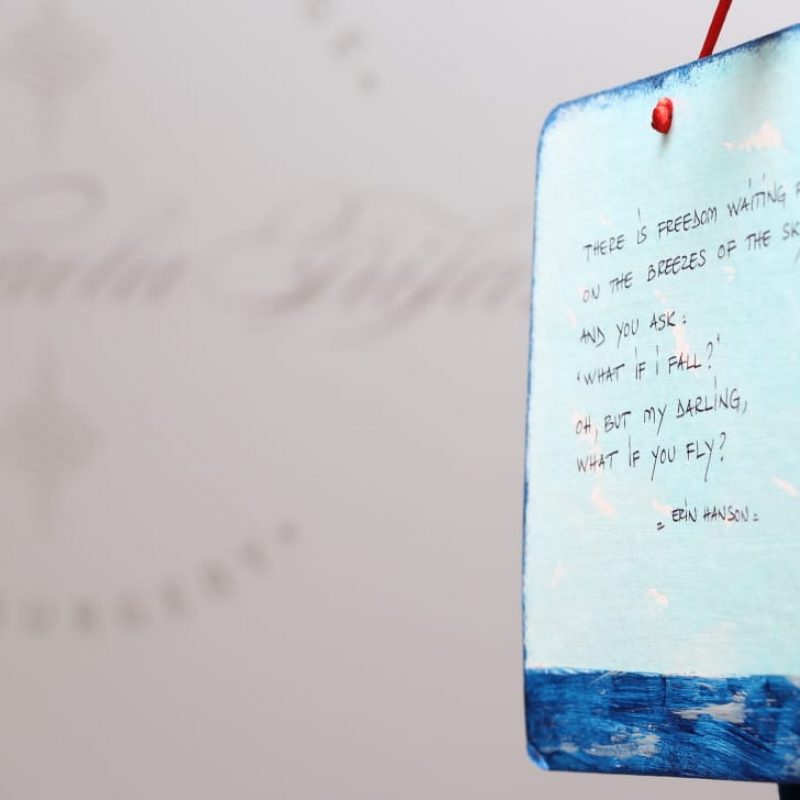 THERE IS FREEDOM WAITING
ON THE BREEZES OF THE
AND YOU ASK:
"WHAT IF I FALL?"
OH, BUT MY DARLING,
WHAT IF YOU FLY?
= ERIN HANSON =
SURGERY